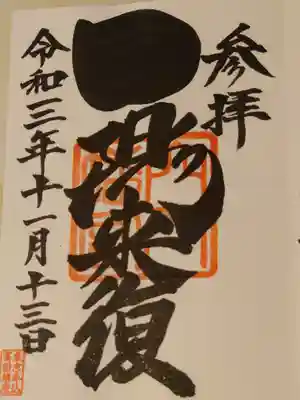 参拝
一陽来復
令和三年十一月十三日